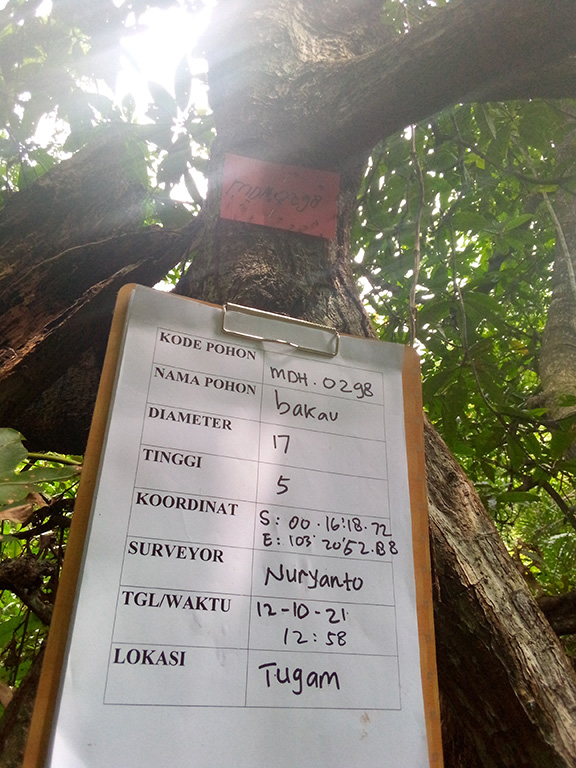 MDH.0298
KODE POHON MDH.0298
NAMA POHON bakau
DIAMETER 17
TINGGI 5
KOORDINAT S: 00.16'.18.72
E: 103°20'52.88
SURVEYOR Nuryanto
TGL/WAKTU 12-10-21
12:58
LOKASI Tugam